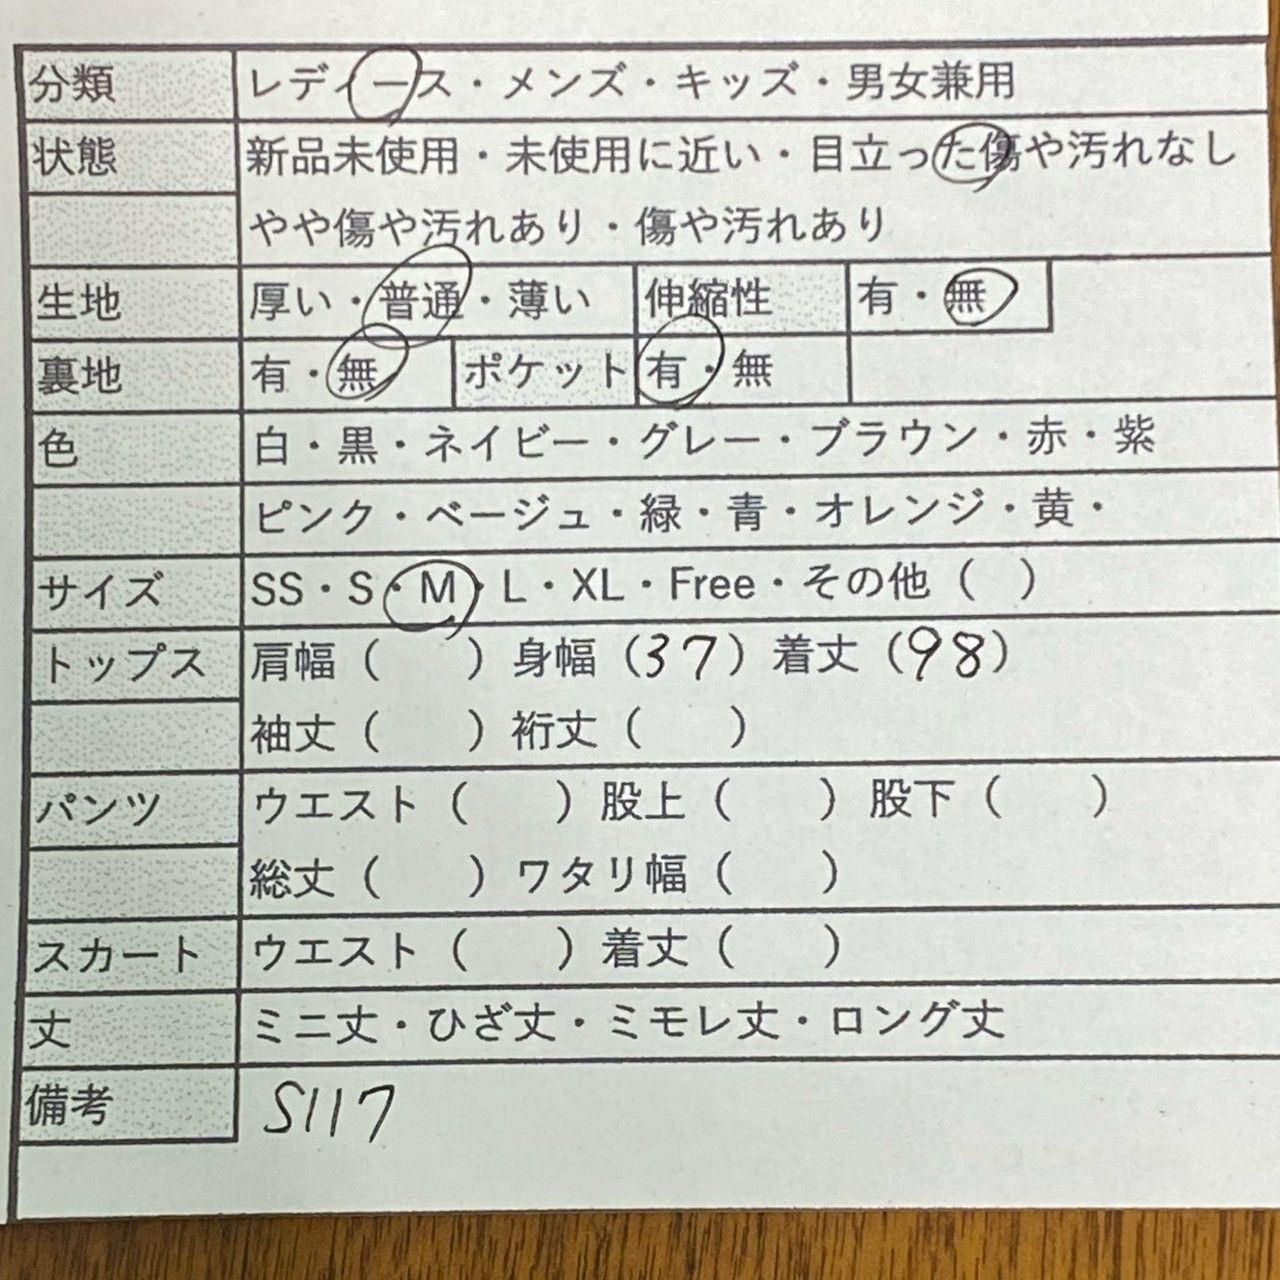 分類 レディース・メンズ・キッズ・男女兼用
状態 新品未使用・未使用に近い・目立った傷や汚れなし
やや傷や汚れあり・傷や汚れあり
生地 厚い・普通・薄い 伸縮性 有・無
裏地 有・無 ポケット 有・無
色 白・黒・ネイビー・グレー・ブラウン・赤・紫
ピンク・ベージュ・緑・青・オレンジ・黄・
サイズ SS・S・M・L・XL・Free・その他（ ）
トップス 肩幅（ ）身幅（37）着丈（98）
袖丈（ ）裄丈（ ）
パンツ ウエスト（ ）股上（ ）股下（ ）
総丈（ ）ワタリ幅（ ）
スカート ウエスト（ ）着丈（ ）
丈 ミニ丈・ひざ丈・ミモレ丈・ロング丈
備考 S117